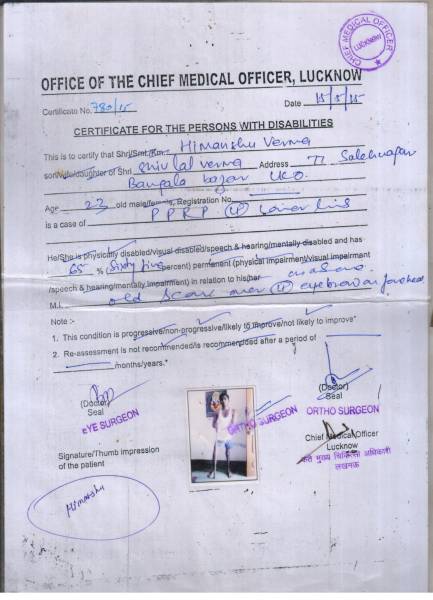 CHIEF MEDICAL OFFICER
LUCKNOW
OFFICE OF THE CHIEF MEDICAL OFFICER, LUCKNOW
Certificate No. 780/15 Date 15/5/15
CERTIFICATE FOR THE PERSONS WITH DISABILITIES
This is to certify that Shri/Smt./Km. Himanshu Verma
son/wife/daughter of Shri Shiv lal verma Address 77 Salehnagar
Bangala bazar LKO.
Age 23 old male/female, Registration No.
is a case of P P R P Lower limb
He/She is physically disabled/visual disabled/speech & hearing/mentally disabled and has
65 % (Sixty five percent) permenent (physical impairment/visual impairment
/speech & hearing/mentally impairment) in relation to his/her
M.I. old scar over eyebrow forehead
Note :-
1. This condition is progressive/non-progressive/likely to improve/not likely to improve*
2. Re-assessment is not recommended/is recommended after a period of
months/years.*
(Doctor)
Seal
EYE SURGEON
ORTHO SURGEON
(Doctor)
Seal
ORTHO SURGEON
Chief Medical Officer
Lucknow
कृते मुख्य चिकित्सा अधिकारी
लखनऊ
Signature/Thumb impression
of the patient
Himanshu